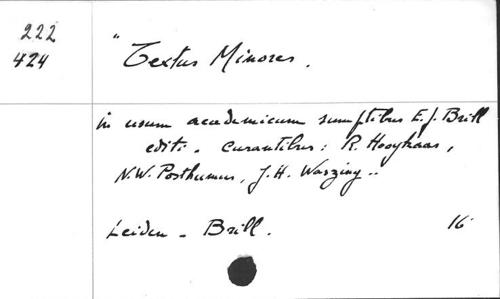 222
424
" Textus Minores.
in usum academicum sumptibus E.J. Brill
editi. curantibus: R. Hooykaas,
N.W. Posthumus, J.H. Waszing..
Leiden - Brill. 16